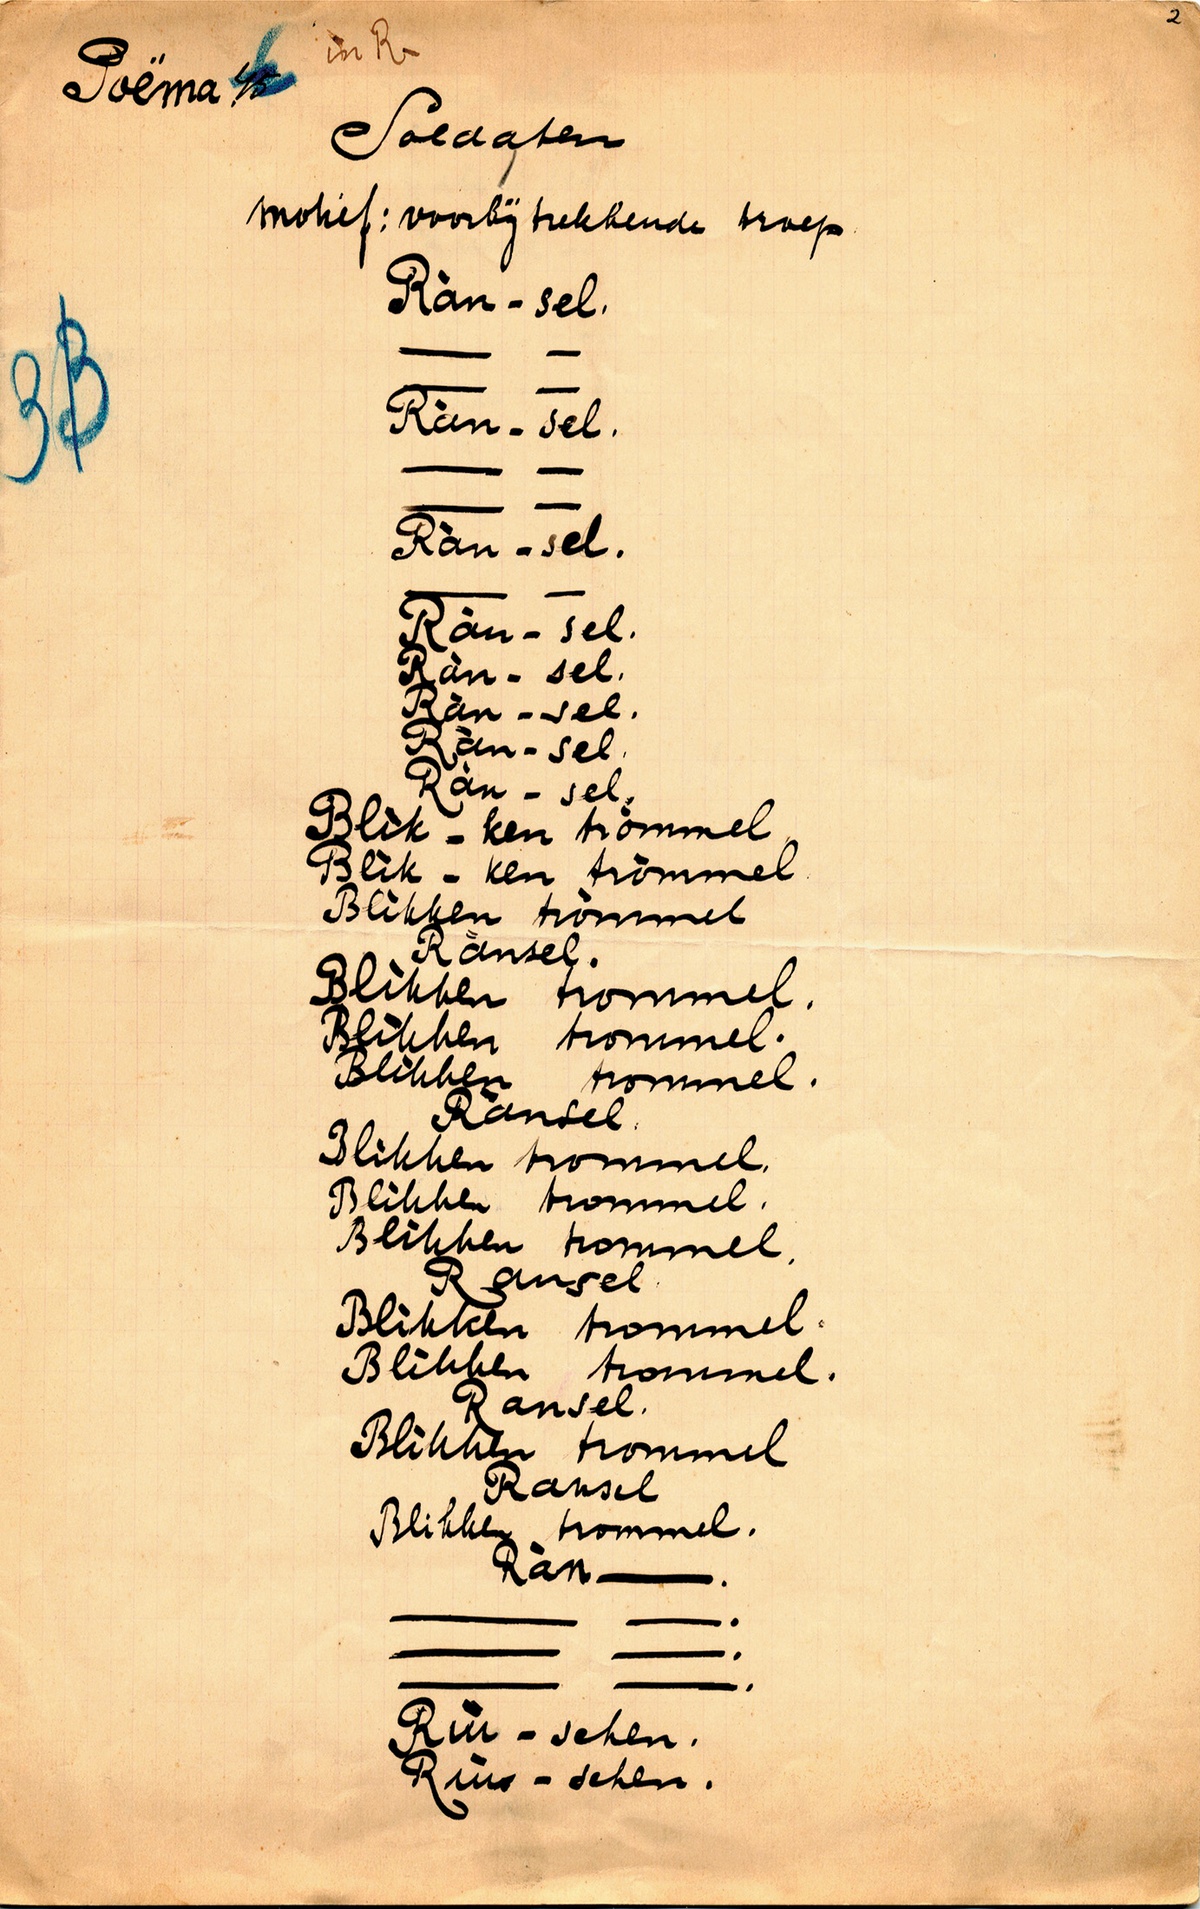 2
in R
Poëma
Soldaten
motief: voorbij trekkende troep
Ràn - sel.
— —
— —
Ràn - sel.
— —
— —
Ràn - sel.
— —
Ràn - sel.
Ràn - sel.
Ràn - sel.
Ràn - sel.
Ràn - sel.
Blik - ken tròmmel.
Blik - ken tròmmel.
Blikken tròmmel
Rànsel.
Blikken trommel.
Blikken trommel.
Blikken trommel.
Rànsel.
Blikken trommel.
Blikken trommel.
Blikken trommel.
Ransel.
Blikken trommel.
Blikken trommel.
Ransel.
Blikken trommel
Ransel
Blikken trommel.
Ràn —.
— —.
— —.
— —.
Rùi - schen.
Rui - schen.